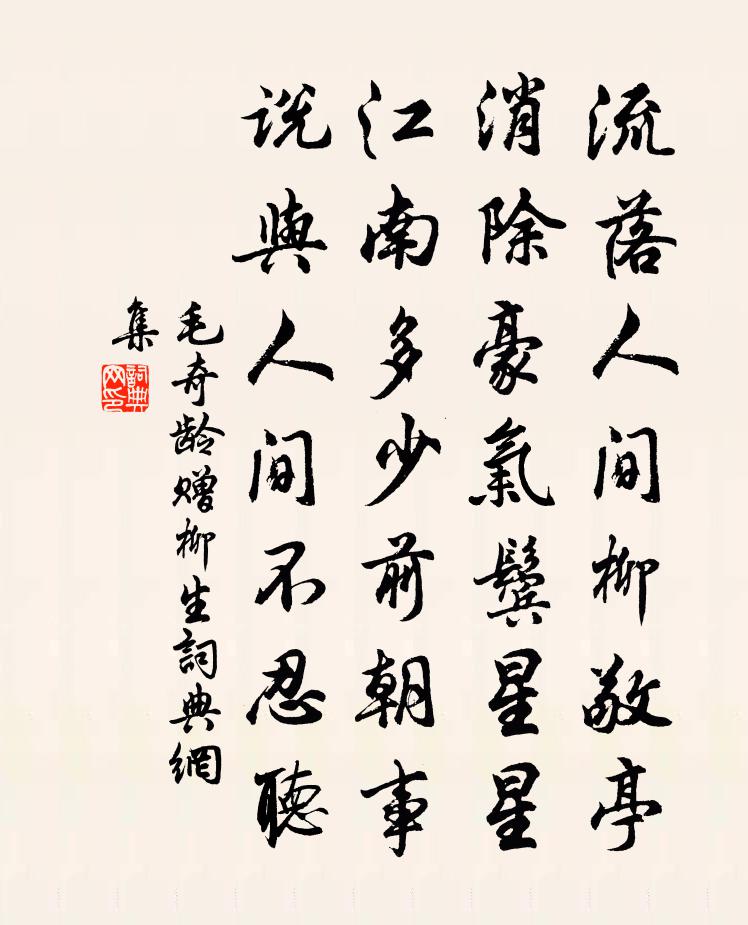 流落人间柳敬亭
消除豪氣鬓星星
江南多少前朝事
说與人间不忍聽
毛奇龄赠柳生詞典網
集
詞典网印